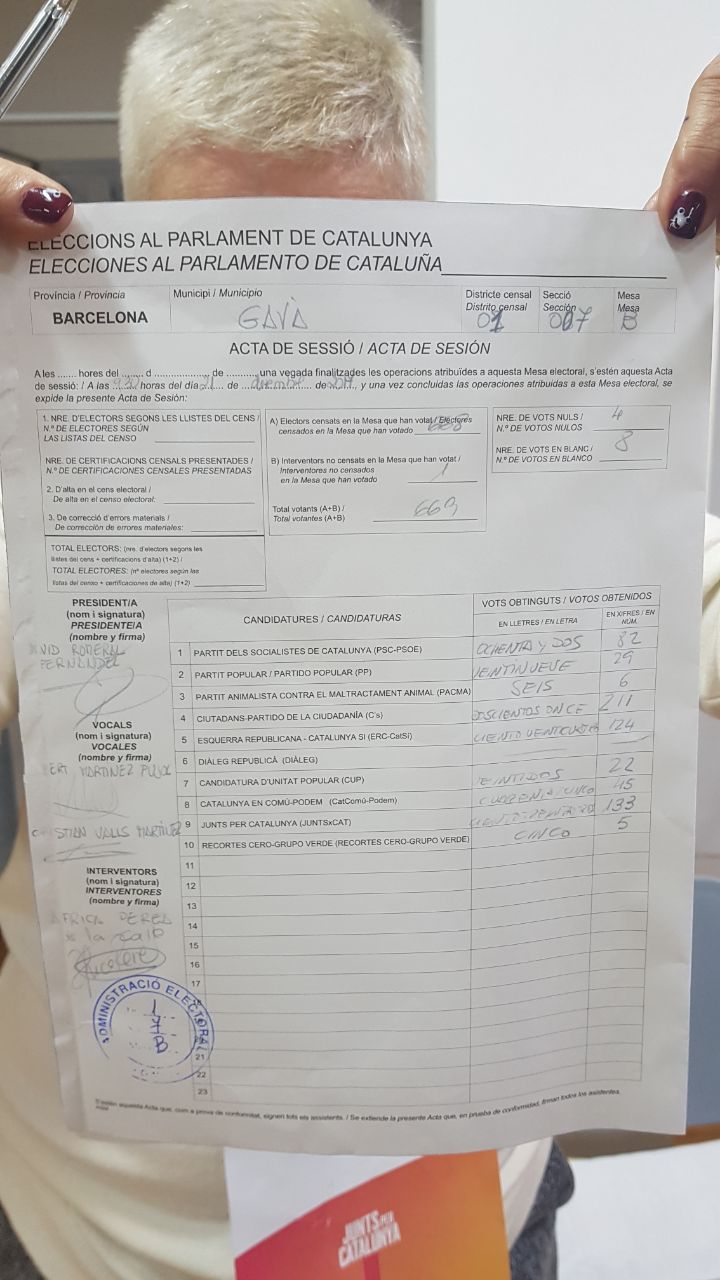 ELECCIONS AL PARLAMENT DE CATALUNYA
ELECCIONES AL PARLAMENTO DE CATALUÑA
Província / Provincia
BARCELONA
Municipi / Municipio
GAVÀ
Districte censal
Distrito censal
01
Secció
Sección
007
Mesa
Mesa
B
ACTA DE SESSIÓ / ACTA DE SESIÓN
A les ....... hores del ....... d ....................... de ..........., una vegada finalitzades les operacions atribuïdes a aquesta Mesa electoral, s'estén aquesta Acta
de sessió: / A las horas del día de de y una vez concluidas las operaciones atribuidas a esta Mesa electoral, se
expide la presente Acta de Sesión:
1. NRE. D'ELECTORS SEGONS LES LLISTES DEL CENS /
N.º DE ELECTORES SEGÚN
LAS LISTAS DEL CENSO
NRE. DE CERTIFICACIONS CENSALS PRESENTADES /
N.º DE CERTIFICACIONES CENSALES PRESENTADAS
2. D'alta en el cens electoral /
De alta en el censo electoral:
3. De correcció d'errors materials /
De corrección de errores materiales:
TOTAL ELECTORS: (nre. d'electors segons les
llistes del cens + certificacions d'alta) (1+2) /
TOTAL ELECTORES: (nº electores según las
listas del censo + certificaciones de alta) (1+2)
A) Electors censats en la Mesa que han votat / Electores
censados en la Mesa que han votado 668
B) Interventors no censats en la Mesa que han votat /
Interventores no censados
en la Mesa que han votado 1
Total votants (A+B) /
Total votantes (A+B) 669
NRE. DE VOTS NULS /
N.º DE VOTOS NULOS 4
NRE. DE VOTS EN BLANC /
N.º DE VOTOS EN BLANCO 8
PRESIDENT/A
(nom i signatura)
PRESIDENTE/A
(nombre y firma)
VOCALS
(nom i signatura)
VOCALES
(nombre y firma)
MARTINEZ
VALLS MARTINEZ
INTERVENTORS
(nom i signatura)
INTERVENTORES
(nombre y firma)
CANDIDATURES / CANDIDATURAS
VOTS OBTINGUTS / VOTOS OBTENIDOS
EN LLETRES / EN LETRA
EN XIFRES / EN NÚM.
1 PARTIT DELS SOCIALISTES DE CATALUNYA (PSC-PSOE) OCHENTA Y DOS 82
2 PARTIT POPULAR / PARTIDO POPULAR (PP) VEINTINUEVE 29
3 PARTIT ANIMALISTA CONTRA EL MALTRACTAMENT ANIMAL (PACMA) SEIS 6
4 CIUTADANS-PARTIDO DE LA CIUDADANÍA (C's) DOSCIENTOS ONCE 211
5 ESQUERRA REPUBLICANA - CATALUNYA SÍ (ERC-CatSí) CIENTO VENTICUATRO 124
6 DIÀLEG REPUBLICÀ (DIÀLEG)
7 CANDIDATURA D'UNITAT POPULAR (CUP) VEINTIDOS 22
8 CATALUNYA EN COMÚ-PODEM (CatComú-Podem) 45
9 JUNTS PER CATALUNYA (JUNTSxCAT) 133
10 RECORTES CERO-GRUPO VERDE (RECORTES CERO-GRUPO VERDE) CINCO 5
11
12
13
14
15
16
17
21
22
23
ADMINISTRACIÓ ELECTORAL
1
7
B
S'estén aquesta Acta que, com a prova de conformitat, signen tots els assistents. / Se extiende la presente Acta que, en prueba de conformidad, firman todos los asistentes.
JUNTS PER
CATALUNYA